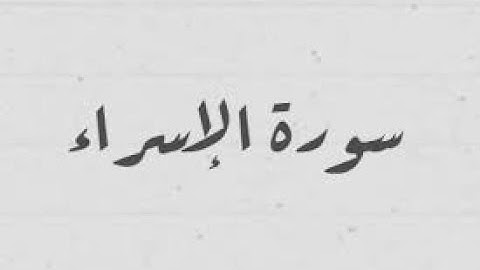 سورة الإسراء